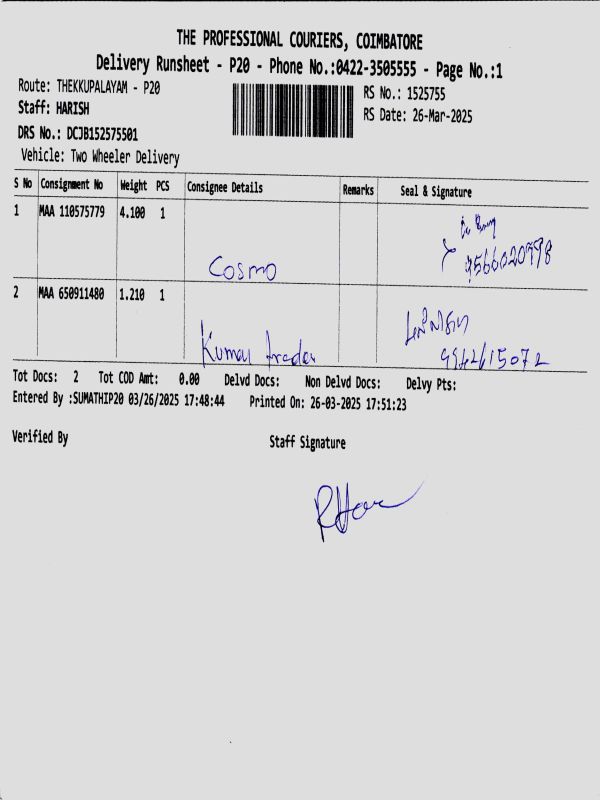 THE PROFESSIONAL COURIERS, COIMBATORE
Delivery Runsheet - P20 - Phone No.:0422-3505555 - Page No.:1
Route: THEKKUPALAYAM - P20
RS No.: 1525755
Staff: HARISH
RS Date: 26-Mar-2025
DRS No.: DCJB152575501
Vehicle: Two Wheeler Delivery
S No Consignment No Weight PCS Consignee Details Remarks Seal & Signature
1 MAA 110575779 4.100 1
Cosmo
2 MAA 650911480 1.210 1
Kumar
Tot Docs: 2 Tot COD Amt: 0.00 Delvd Docs: Non Delvd Docs: Delvy Pts:
Entered By :SUMATHIP20 03/26/2025 17:48:44 Printed On: 26-03-2025 17:51:23
Verified By Staff Signature